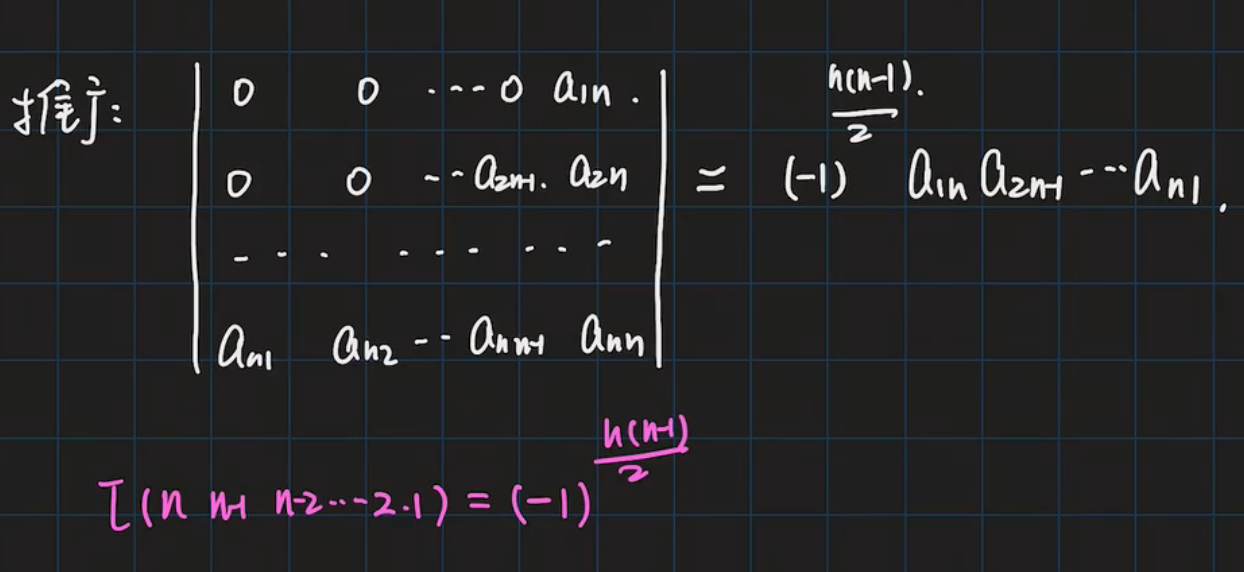 推广:
0 0 ···0 a₁ₙ.
0 0 ··a₂ₙ₋₁. a₂ₙ
··· ··· ···
aₙ₁ aₙ₂ ·· aₙₙ₋₁ aₙₙ
= (-1)^(n(n-1)/2) a₁ₙ a₂ₙ₋₁ ··· aₙ₁.
τ(n n-1 n-2···2·1) = (-1)^(n(n-1)/2)